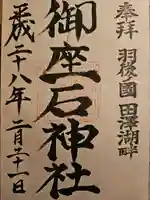 奉拝
羽後之國 田澤湖畔
御座石神社
平成二十八年 二月二十一日